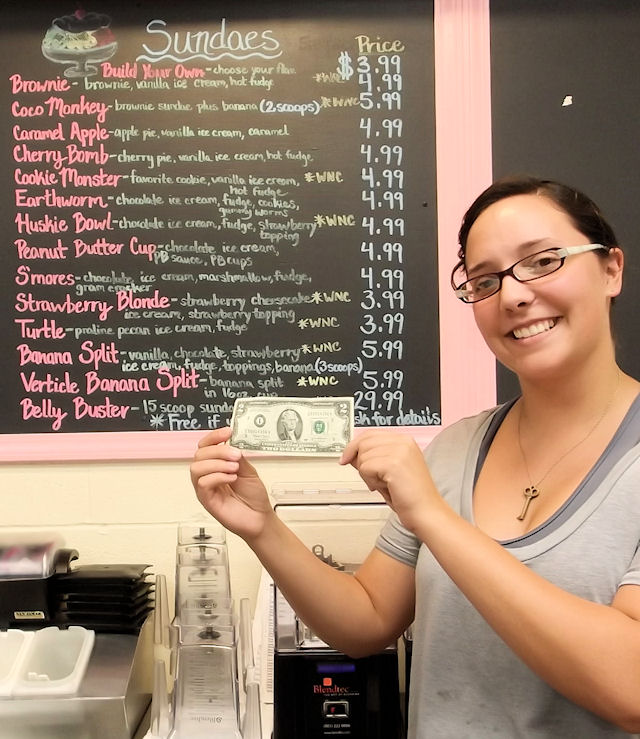 Sundaes
Price
Build Your Own - choose your flav. $3.99
Brownie - brownie, vanilla ice cream, hot fudge *WNC 4.99
Coco Monkey - brownie sundae plus banana (2 scoops) *WNC 5.99
Caramel Apple - apple pie, vanilla ice cream, caramel 4.99
Cherry Bomb - cherry pie, vanilla ice cream, hot fudge 4.99
Cookie Monster - favorite cookie, vanilla ice cream, *WNC 4.99
hot fudge
Earthworm - chocolate ice cream, fudge, cookies, 4.99
gummy worms
Huskie Bowl - chocolate ice cream, fudge, strawberry *WNC 4.99
topping
Peanut Butter Cup - chocolate ice cream, 4.99
PB sauce, PB cups
S'mores - chocolate, ice cream, marshmallow, fudge, 4.99
gram cracker
Strawberry Blonde - strawberry cheesecake *WNC 3.99
ice cream, strawberry topping
Turtle - praline pecan ice cream, fudge *WNC 3.99
Banana Split - vanilla, chocolate, strawberry *WNC 5.99
ice cream, fudge, toppings, banana (3 scoops)
Verticle Banana Split - banana split *WNC 5.99
in 16oz cup
Belly Buster - 15 scoop sunda 29.99
*Free if y sk for details
2 2
TWO DOLLARS
Blendtec